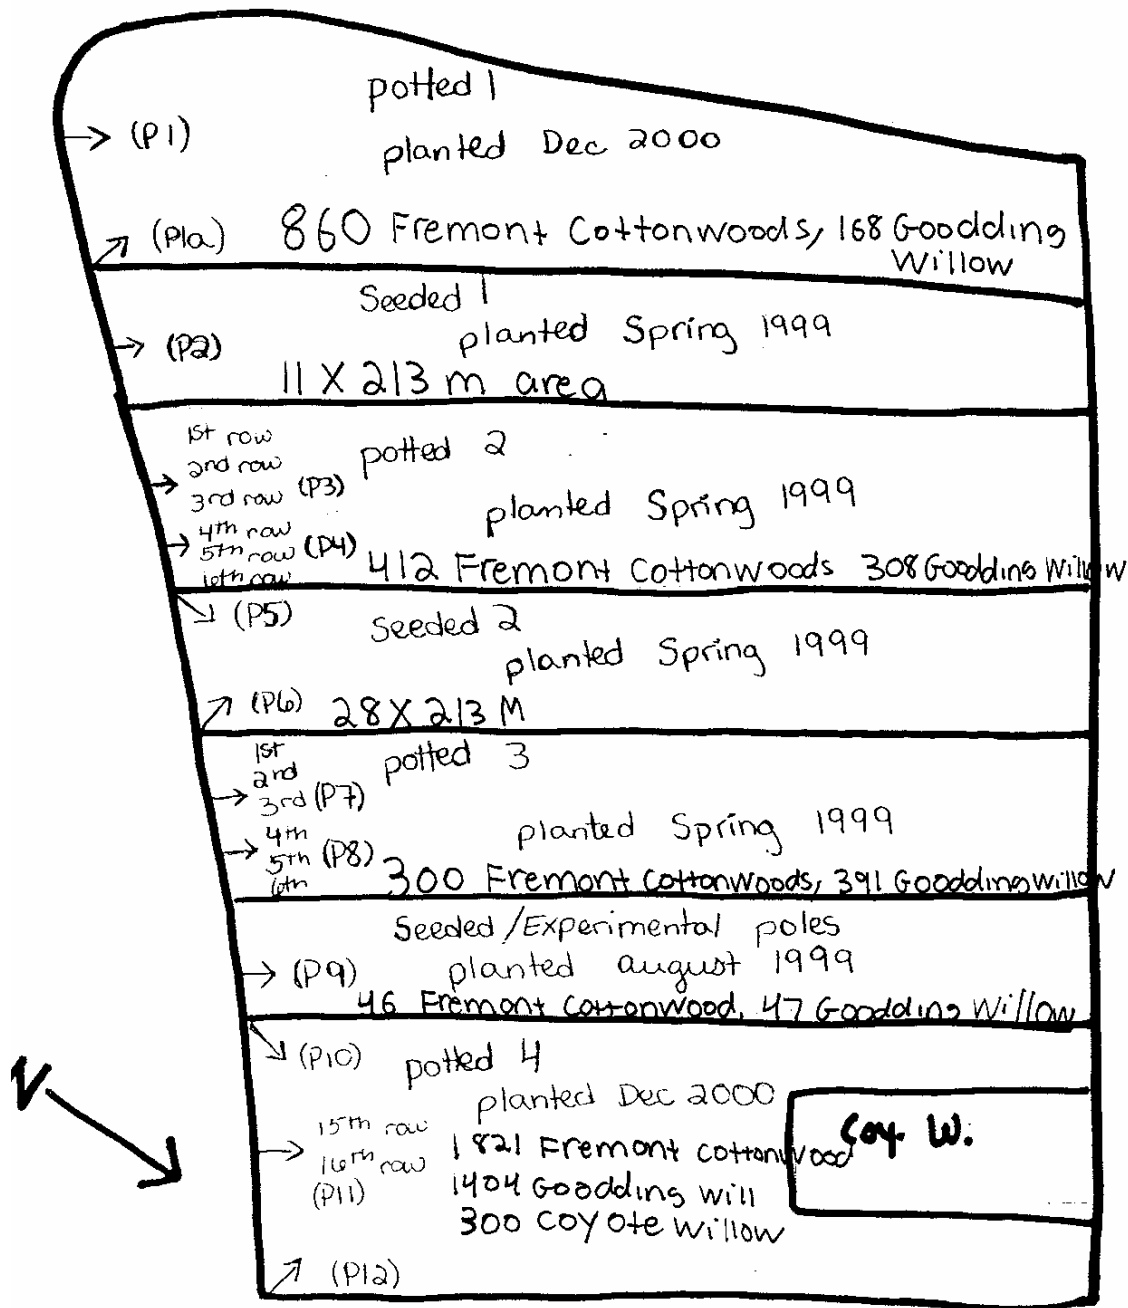 potted 1
(P1)
planted Dec 2000
(P1a) 860 Fremont Cottonwoods, 168 Goodding
Willow
Seeded 1
planted Spring 1999
(P2)
11 X 213 m area
1st row
potted 2
2nd row
3rd row (P3)
planted Spring 1999
4th row
5th row (P4)
412 Fremont Cottonwoods 308 Goodding Willow
6th row
(P5)
Seeded 2
planted Spring 1999
(P6) 28 X 213 M
1st
potted 3
2nd
3rd (P7)
planted Spring 1999
4th
5th (P8)
6th
300 Fremont Cottonwoods, 391 Goodding Willow
Seeded/Experimental poles
(P9) planted august 1999
46 Fremont Cottonwood, 47 Goodding Willow
(P10) potted 4
planted Dec 2000
N
15th row
16th row
(P11)
1821 Fremont Cottonwood
Coy. W.
1404 Goodding Will
300 Coyote Willow
(P12)